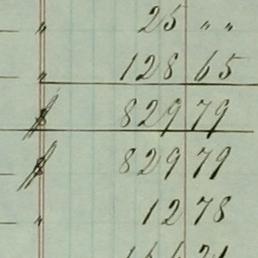 " 25 " "
" 128 65
$ 829 79
$ 829 79
" 12 78